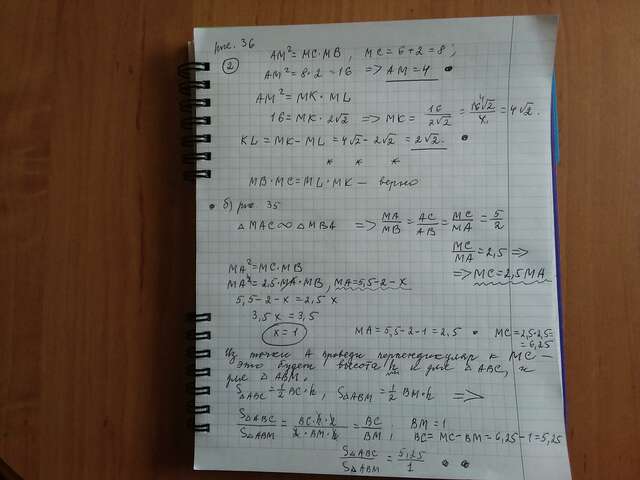 рис. 36
② AM² = MC·MB, MC = 6+2 = 8;
AM² = 8·2 = 16 => AM = 4
AM² = MK·ML
16 = MK·2√2 => MK = 16/2√2 = 16√2/4 = 4√2.
KL = MK - ML = 4√2 - 2√2 = 2√2.
* * *
MB·MC = ML·MK — верно
• б) рис. 35
△MAC ∞ △MBA => MA/MB = AC/AB = MC/MA = 5/2
MC/MA = 2,5 =>
=> MC = 2,5 MA
MA² = MC·MB
MA² = 2,5·MA·MB, MA = 5,5-2-x
5,5-2-x = 2,5x
3,5x = 3,5
x = 1
MA = 5,5-2-1 = 2,5 • MC = 2,5·2,5 =
= 6,25
Из точки A проведи перпендикуляр к MC —
это будет высота h и для △ABC, и
для △ABM.
S△ABC = 1/2 BC·h, S△ABM = 1/2 BM·h =>
S△ABC/S△ABM = BC·h·2/2·BM·h = BC/BM; BM = 1
BC = MC - BM = 6,25 - 1 = 5,25
S△ABC/S△ABM = 5,25/1